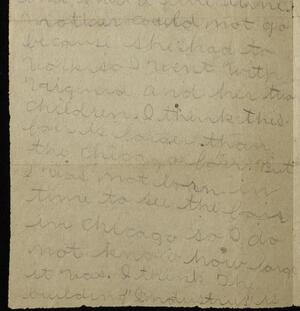 and had a fine time.
Mother could not go
because she had to
work so I went with
Virginia and her two
children. I think this
fair is larger than
the Chicago fair. But
I was not born in
time to see the fair
in Chicago so I do
not know how large
it was. I think the
building "Industries"